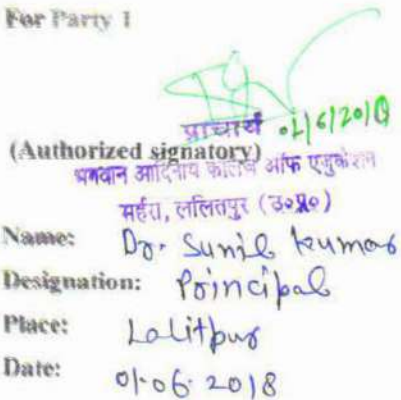 For Party 1
प्राचार्य 01/6/2018
(Authorized signatory)
भगवान आदिनाथ कॉलेज ऑफ एजुकेशन
महर्रा, ललितपुर (उ०प्र०)
Name: Dr. Sunil Kumar
Designation: Principal
Place: Lalitpur
Date: 01-06-2018